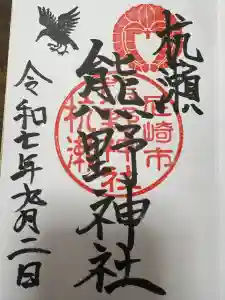 杭瀬
熊野神社
令和七年九月二日
尼崎市
熊野神社
杭瀬